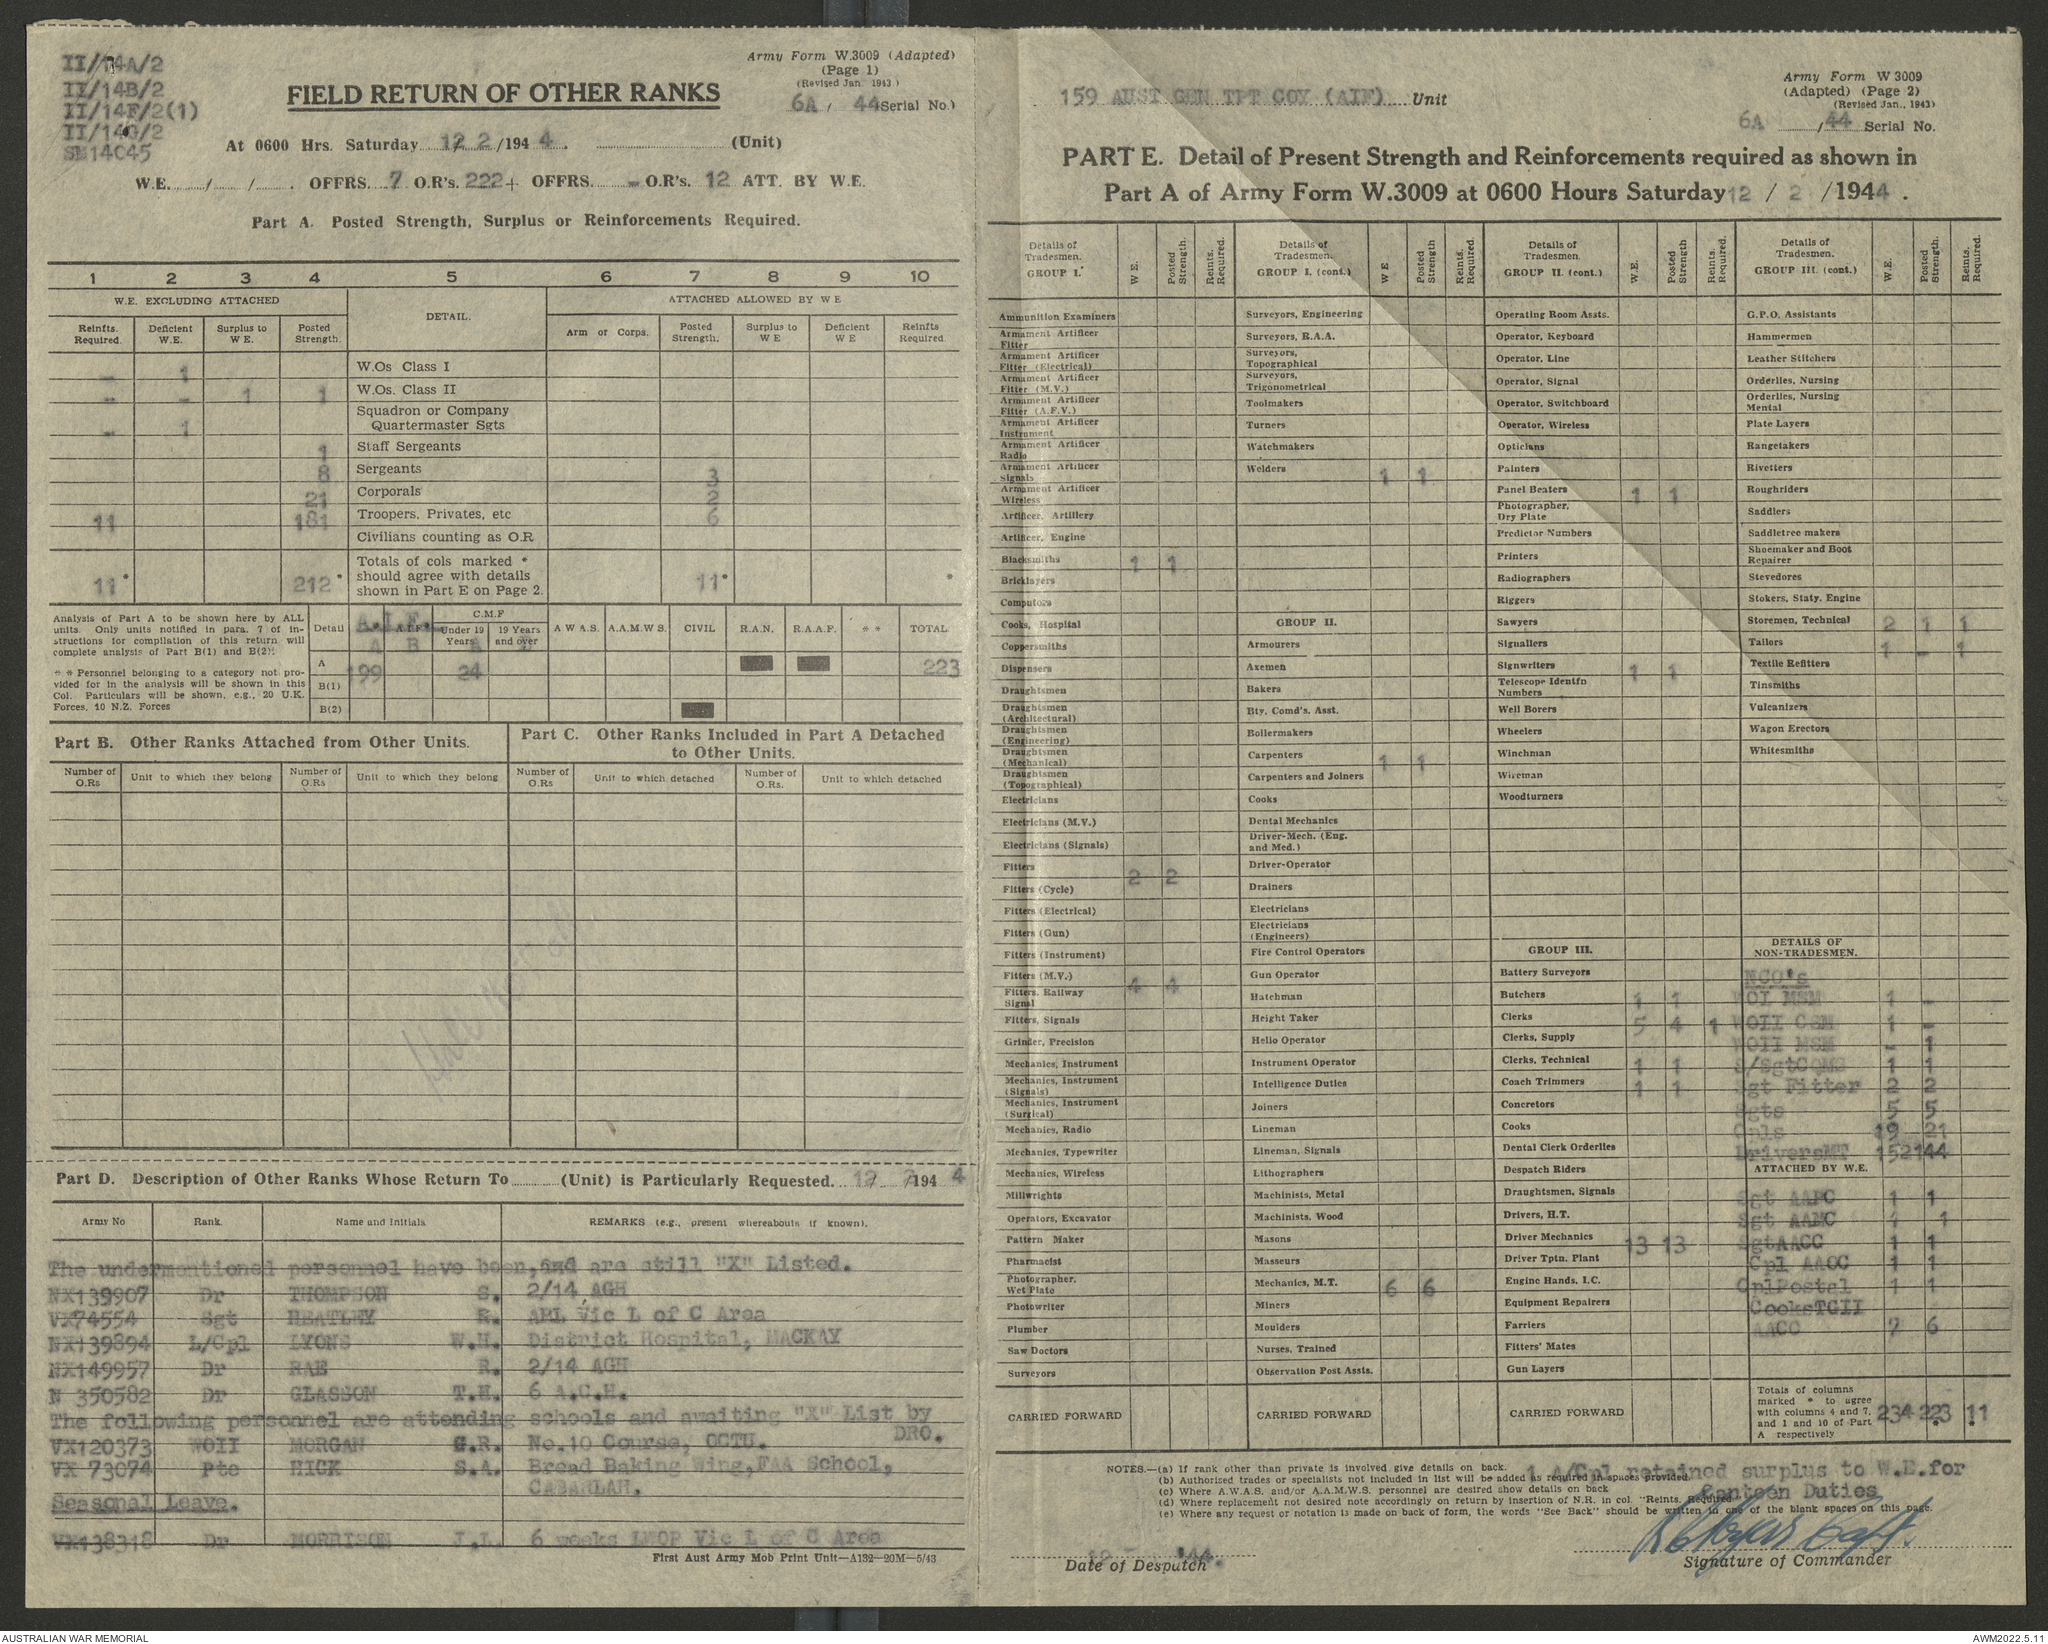 II/14A/2
II/14B/2
II/14F/2(1)
II/14G/2
SM14045
Army Form W.3009 (Adapted)
(Page 1)
(Revised Jan. 1943.)
6A / 44 Serial No.)
FIELD RETURN OF OTHER RANKS
At 0600 Hrs. Saturday 12 2 /194 4 . (Unit)
W.E. / / . OFFRS. 7 O.R's. 222 + OFFRS. - O.R's. 12 ATT. BY W.E.
Part A. Posted Strength, Surplus or Reinforcements Required.
1 2 3 4 5 6 7 8 9 10
W.E. EXCLUDING ATTACHED DETAIL. ATTACHED ALLOWED BY W E
Reinfts. Required. Deficient W.E. Surplus to W E. Posted Strength. Arm or Corps. Posted Strength. Surplus to W E Deficient W E Reinfts Required.
- 1 W.Os Class I
- - 1 1 W.Os. Class II
- 1 Squadron or Company Quartermaster Sgts
1 Staff Sergeants
8 Sergeants 3
21 Corporals 2
11 181 Troopers, Privates, etc 6
Civilians counting as O.R
11 * 212 * Totals of cols marked * should agree with details shown in Part E on Page 2. 11 * *
Analysis of Part A to be shown here by ALL units. Only units notified in para. 7 of instructions for compilation of this return will complete analysis of Part B(1) and B(2):
* * Personnel belonging to a category not provided for in the analysis will be shown in this Col. Particulars will be shown, e.g., 20 U.K. Forces, 10 N.Z. Forces
Detail A.I.F. C.M.F Under 19 Years 19 Years and over A W A S. A.A.M.W S. CIVIL R.A.N. R.A.A.F. * * TOTAL
A 199 24 223
B(1)
B(2)
Part B. Other Ranks Attached from Other Units.
Part C. Other Ranks Included in Part A Detached to Other Units.
Number of O.Rs Unit to which they belong Number of O.Rs Unit to which they belong Number of O.Rs Unit to which detached Number of O.Rs. Unit to which detached
Part D. Description of Other Ranks Whose Return To (Unit) is Particularly Requested. 12 2 /194 4
Army No Rank. Name and Initials REMARKS (e.g., present whereabouts if known).
The undermentioned personnel have been, and are still "X" Listed.
NX139907 Dr THOMPSON S. 2/14 AGH
VX74554 Sgt HEATLEY R. AML Vic L of C Area
NX139894 L/Cpl LYONS W.H. District Hospital, MACKAY
NX149957 Dr RAE R. 2/14 AGH
N 350582 Dr GLASSON T.H. 6 A.C.H.
The following personnel are attending schools and awaiting "X" List by DRO.
VX120373 WOII MORGAN G.R. No.10 Course, OCTU.
VX 73074 Pte HICK S.A. Bread Baking Wing, FAA School, CABARLAH.
Seasonal Leave.
VX138318 Dr MORRISON J.L 6 weeks LWOP Vic L of C Area
First Aust Army Mob Print Unit—A132—20M—5/43
159 AUST GEN TPT COY (AIF) Unit
Army Form W 3009
(Adapted) (Page 2)
(Revised Jan., 1943)
6A / 44 Serial No.
PART E. Detail of Present Strength and Reinforcements required as shown in
Part A of Army Form W.3009 at 0600 Hours Saturday 12 / 2 / 1944 .
Details of Tradesmen. GROUP I. W E. Posted Strength. Reints. Required.
Ammunition Examiners
Armament Artificer Fitter
Armament Artificer Fitter (Electrical)
Armament Artificer Fitter (M.V.)
Armament Artificer Fitter (A.F.V.)
Armament Artificer Instrument
Armament Artificer Radio
Armament Artificer Signals
Armament Artificer Wireless
Artificer, Artillery
Artificer, Engine
Blacksmiths 1 1
Bricklayers
Computors
Cooks, Hospital
Coppersmiths
Dispensers
Draughtsmen
Draughtsmen (Architectural)
Draughtsmen (Engineering)
Draughtsmen (Mechanical)
Draughtsmen (Topographical)
Electricians
Electricians (M.V.)
Electricians (Signals)
Fitters 2 2
Fitters (Cycle)
Fitters (Electrical)
Fitters (Gun)
Fitters (Instrument)
Fitters (M.V.) 4 4
Fitters, Railway Signal
Fitters, Signals
Grinder, Precision
Mechanics, Instrument
Mechanics, Instrument (Signals)
Mechanics, Instrument (Surgical)
Mechanics, Radio
Mechanics, Typewriter
Mechanics, Wireless
Millwrights
Operators, Excavator
Pattern Maker
Pharmacist
Photographer, Wet Plate
Photowriter
Plumber
Saw Doctors
Surveyors
CARRIED FORWARD
Details of Tradesmen. GROUP I. (cont.) W E Posted Strength Reints. Required.
Surveyors, Engineering
Surveyors, R.A.A.
Surveyors, Topographical
Surveyors, Trigonometrical
Toolmakers
Turners
Watchmakers
Welders 1 1
GROUP II.
Armourers
Axemen
Bakers
Bty. Comd's. Asst.
Boilermakers
Carpenters 1 1
Carpenters and Joiners
Cooks
Dental Mechanics
Driver-Mech. (Eng. and Med.)
Driver-Operator
Drainers
Electricians
Electricians (Engineers)
Fire Control Operators
Gun Operator
Hatchman
Height Taker
Helio Operator
Instrument Operator
Intelligence Duties
Joiners
Lineman
Lineman, Signals
Lithographers
Machinists, Metal
Machinists, Wood
Masons
Masseurs
Mechanics, M.T. 6 6
Miners
Moulders
Nurses, Trained
Observation Post Assts.
CARRIED FORWARD
Details of Tradesmen. GROUP II. (cont.) W.E. Posted Strength Reints. Required.
Operating Room Assts.
Operator, Keyboard
Operator, Line
Operator, Signal
Operator, Switchboard
Operator, Wireless
Opticians
Painters
Panel Beaters 1 1
Photographer, Dry Plate
Predictor Numbers
Printers
Radiographers
Riggers
Sawyers
Signallers
Signwriters 1 1
Telescope Identfn Numbers
Well Borers
Wheelers
Winchman
Wireman
Woodturners
GROUP III.
Battery Surveyors
Butchers 1 1
Clerks 5 4 1
Clerks, Supply
Clerks, Technical 1 1
Coach Trimmers 1 1
Concretors
Cooks
Dental Clerk Orderlies
Despatch Riders
Draughtsmen, Signals
Drivers, H.T.
Driver Mechanics 13 13
Driver Tptn. Plant
Engine Hands, I.C.
Equipment Repairers
Farriers
Fitters' Mates
Gun Layers
CARRIED FORWARD
Details of Tradesmen. GROUP III. (cont.) W.E. Posted Strength. Reints. Required.
G.P.O. Assistants
Hammermen
Leather Stitchers
Orderlies, Nursing
Orderlies, Nursing Mental
Plate Layers
Rangetakers
Rivetters
Roughriders
Saddlers
Saddletree makers
Shoemaker and Boot Repairer
Stevedores
Stokers, Staty. Engine
Storemen, Technical 2 1 1
Tailors 1 - 1
Textile Refitters
Tinsmiths
Vulcanizers
Wagon Erectors
Whitesmiths
DETAILS OF NON-TRADESMEN.
NCO's
WOI MSM 1 -
WOII CSM 1 -
WOII MSM - 1
S/SgtCQMS 1 1
Sgt Fitter 2 2
Sgts 5 5
Cpls 19 21
DriversMT 152 144
ATTACHED BY W.E.
Sgt AAPC 1 1
Sgt AAMC 1
SgtAACC 1 1
Cpl AAOC 1 1
CplPostal 1 1
CooksTGII
AACC 7 6
Totals of columns marked * to agree with columns 4 and 7, and 1 and 10 of Part A respectively 234 223 11
NOTES.—(a) If rank other than private is involved give details on back.
(b) Authorised trades or specialists not included in list will be added as required in spaces provided.
(c) Where A.W.A.S. and/or A.A.M.W.S. personnel are desired show details on back
(d) Where replacement not desired note accordingly on return by insertion of N.R. in col. "Reints. Required"
(e) Where any request or notation is made on back of form, the words "See Back" should be written in one of the blank spaces on this page.
1 A/Cpl retained surplus to W.E.for
Canteen Duties
Capt.
Date of Despatch
Signature of Commander
AUSTRALIAN WAR MEMORIAL
AWM2022.5.11